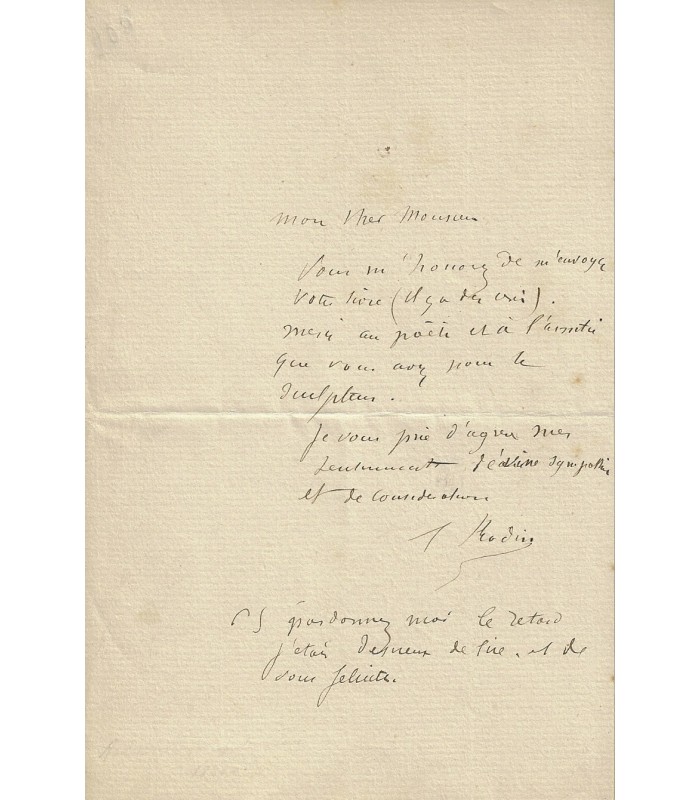 mon cher Monsieur
Vous m'honorez de m'envoyer
votre livre (il y a des vers).
merci au poète et à l'amitié
que vous avez pour le
sculpteur.
Je vous prie d'agréer mes
sentiments d'estime sympathie
et de consideration
A Rodin
PS pardonnez moi le retard
j'étais desireux de lire, et de
vous feliciter.